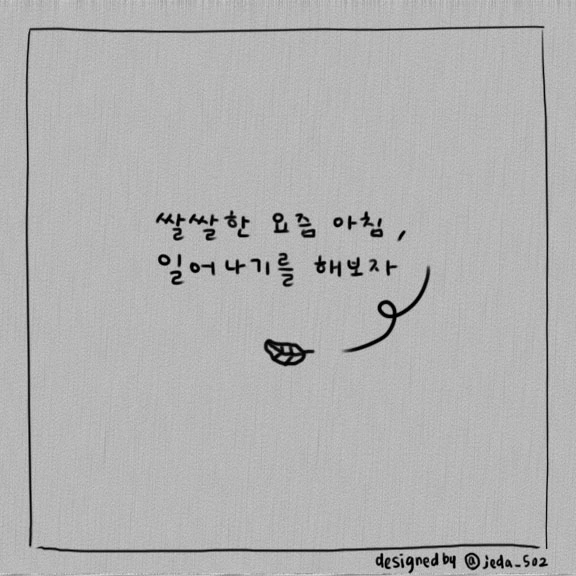 쌀쌀한 요즘 아침,
일어나기를 해보자
designed by @jeda_502